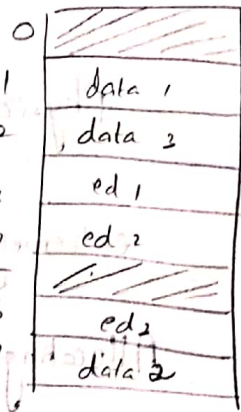 0
1 data 1
data 3
ed 1
ed 2
ed 2
data 2